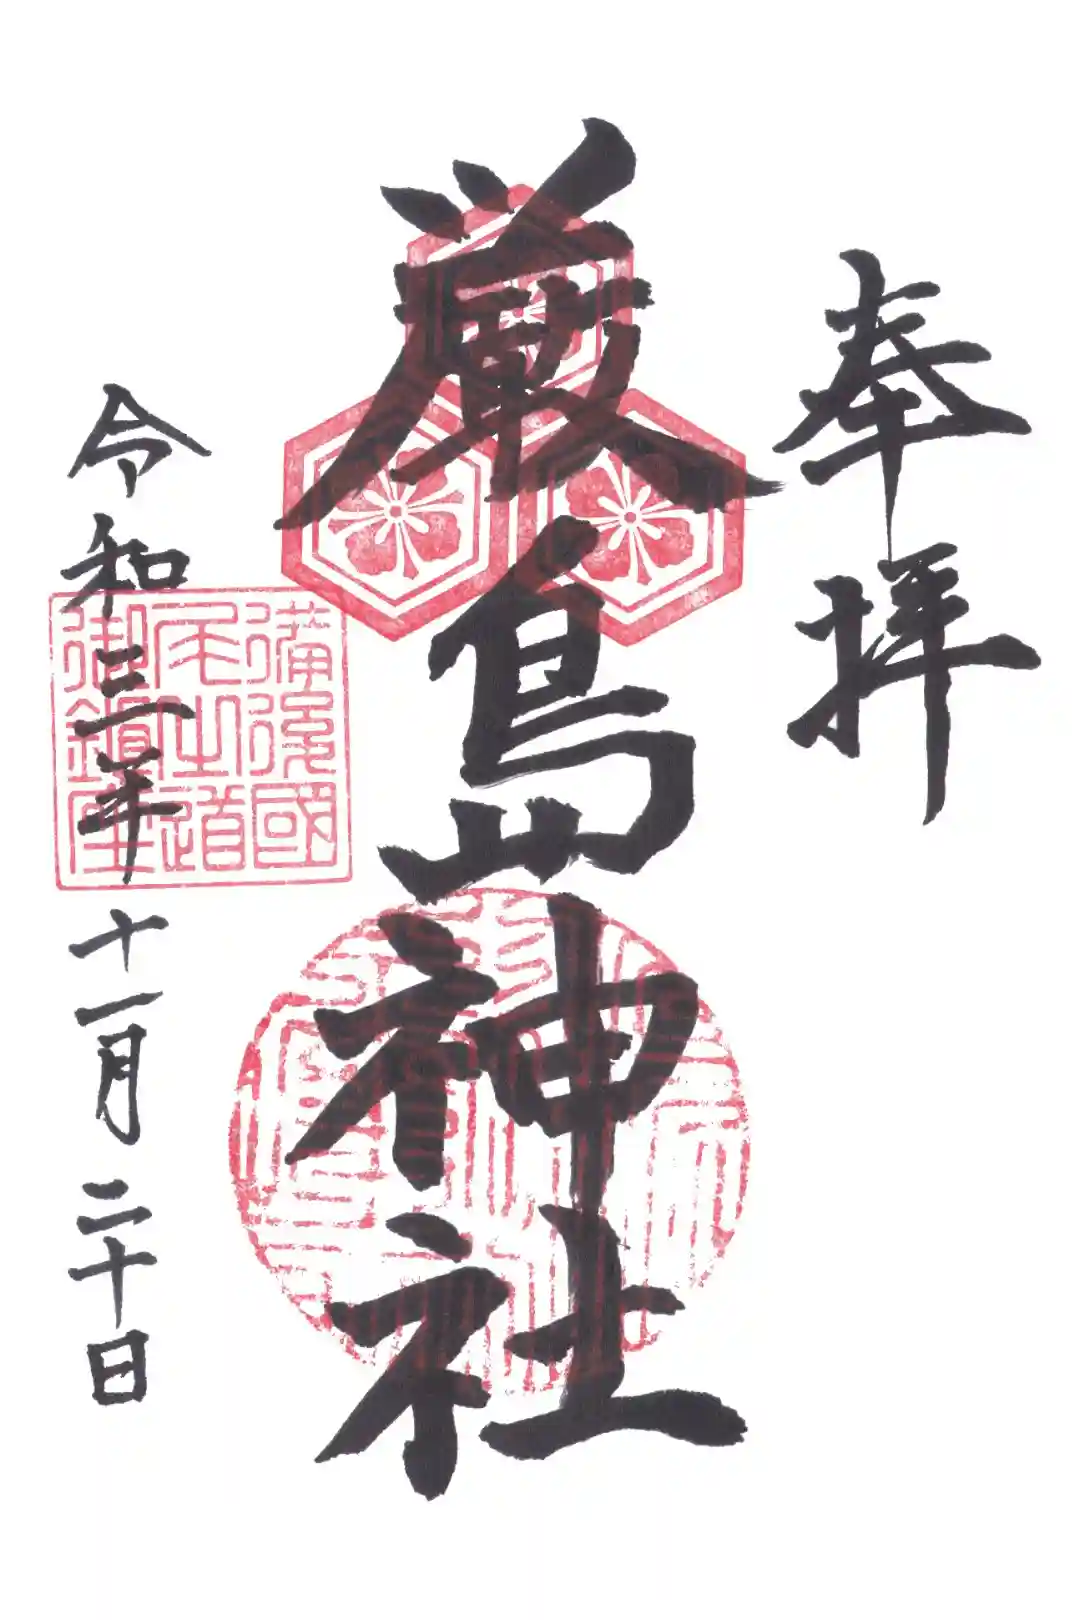 奉拝
厳島神社
備後國
尾之道
御鎮座
令和三年十一月二十日